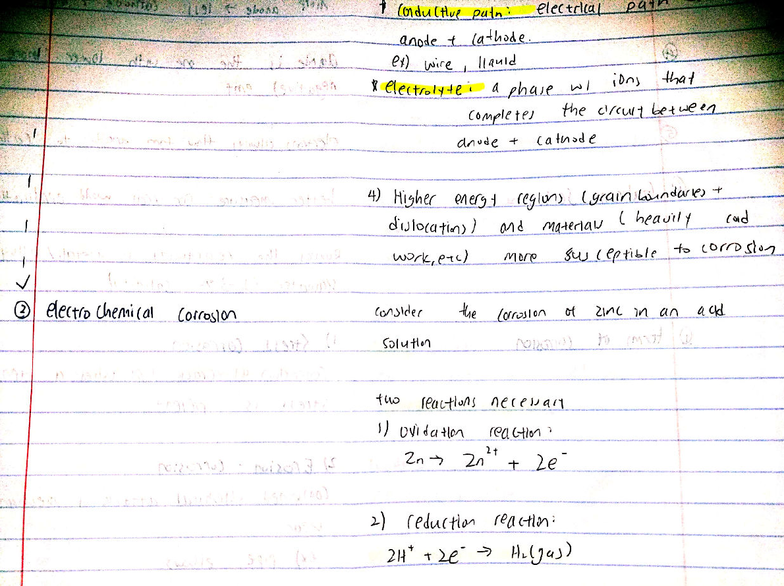 * conductive path: electrical path
anode + cathode.
ex) wire, liquid
* electrolyte: a phase w/ ions that
completes the circuit between
anode + cathode
4) Higher energy regions (grain boundaries +
dislocations) and material (heavily cold
work, etc) more susceptible to corrosion
② electrochemical corrosion
consider the corrosion of zinc in an acid
solution
two reactions necessary
1) oxidation reaction:
Zn → Zn²⁺ + 2e⁻
2) reduction reaction:
2H⁺ + 2e⁻ → H₂(gas)